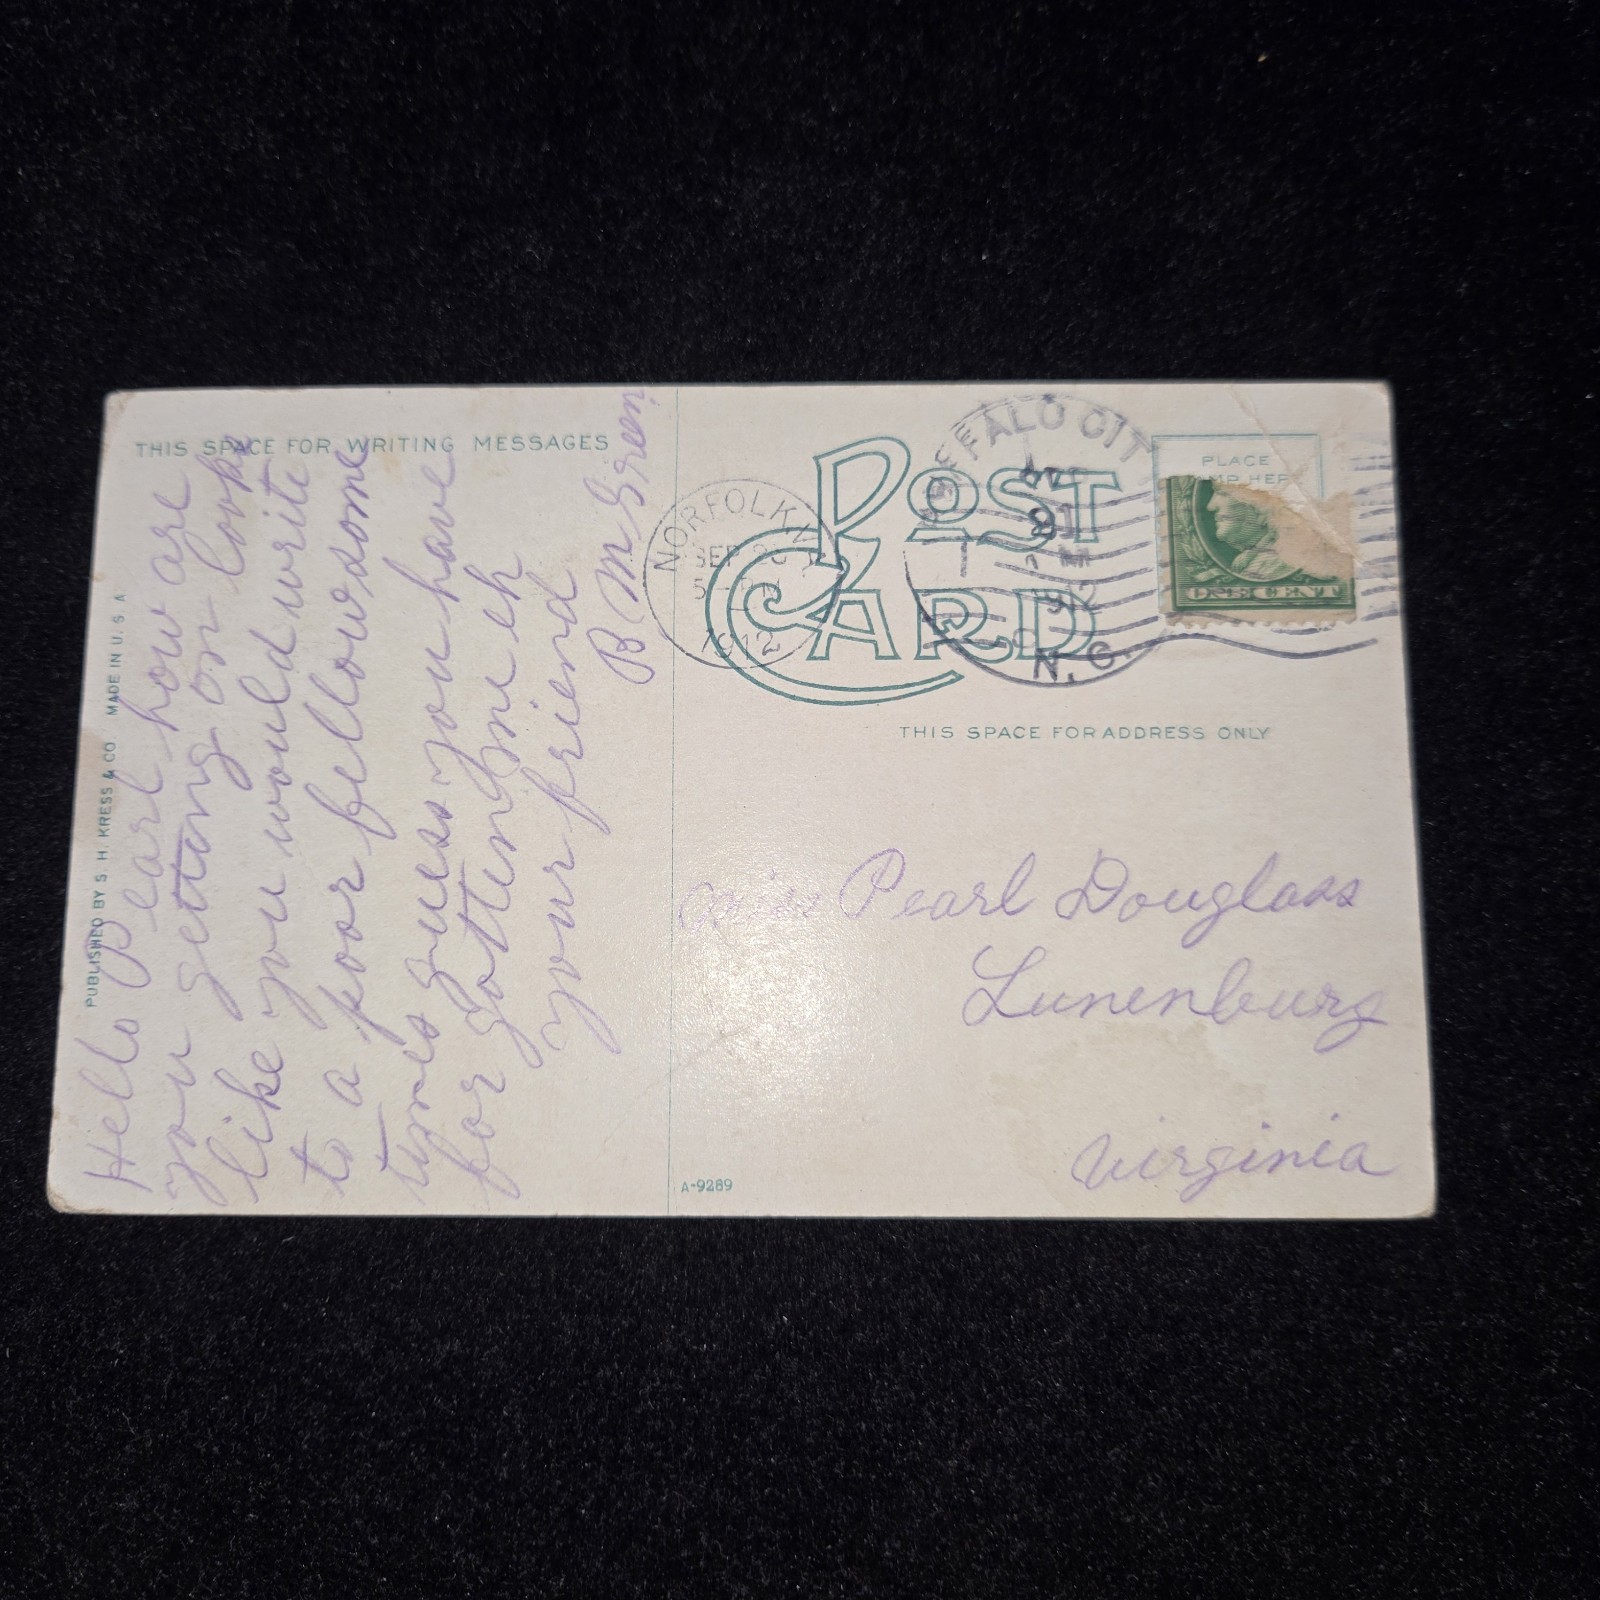 THIS SPACE FOR WRITING MESSAGES
Hello Pearl how are
you getting on looks
like you would write
to a poor fellow some
times guess you have
for gotten me eh
your friend
B M Green
PUBLISHED BY S. H. KRESS & CO MADE IN U. S. A
POST CARD
NORFOLK
SEP
1912
FFALO CIT
1912
N. C.
PLACE
MP HER
ONE CENT
THIS SPACE FOR ADDRESS ONLY
Miss Pearl Douglass
Lunenburg
Virginia
A-9289